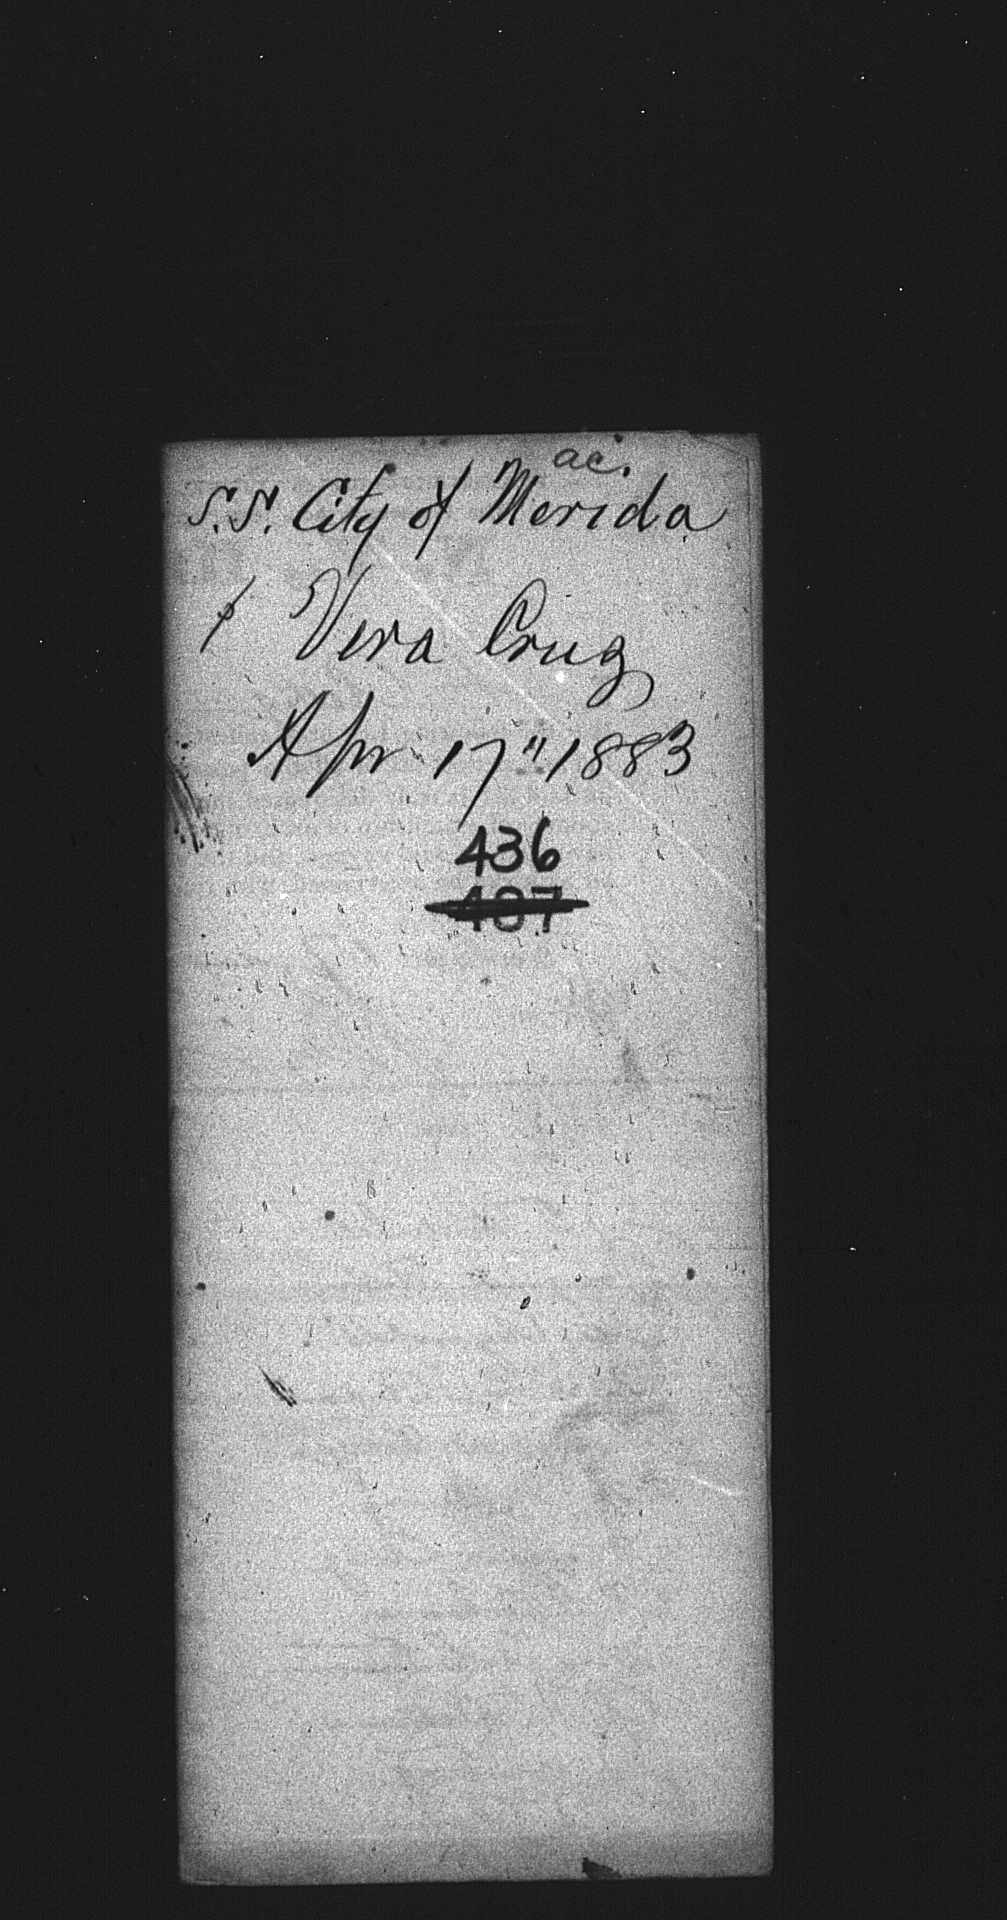 ac.
S.S. City of Merida
Vera Cruz
Apr 17" 1883
436